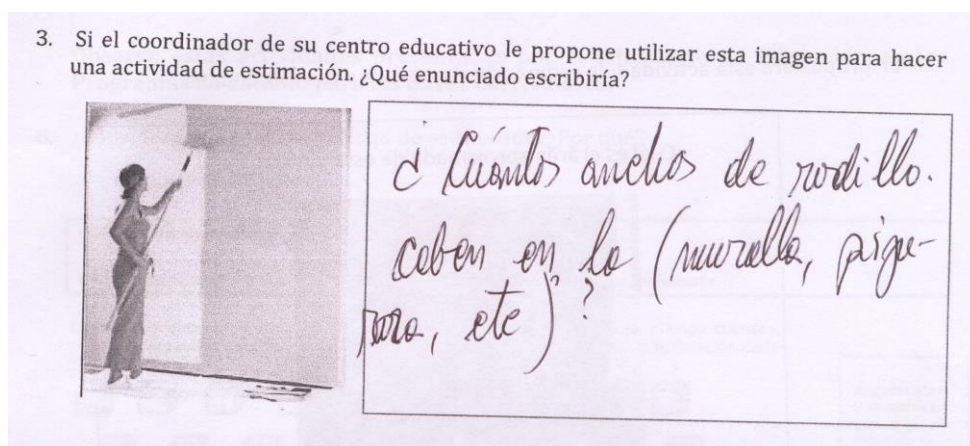 3. Si el coordinador de su centro educativo le propone utilizar esta imagen para hacer
una actividad de estimación. ¿Qué enunciado escribiría?
¿Cuántos anchos de rodillo.
caben en la (muralla, pizar-
rara, etc)?